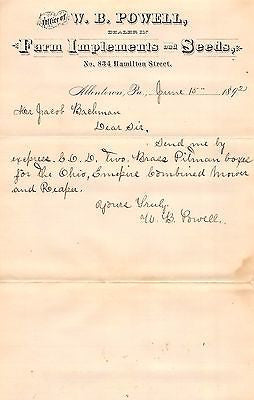 Office of
W. B. POWELL,
DEALER IN
Farm Implements and Seeds,
No. 834 Hamilton Street.
Allentown, Pa., June 15th 1892
Mr Jacob Bachman
Dear Sir,
Send me by
express C.O.D. Two, Brass Pitman boxes
for the Ohio, Empire Combined Mower
and Reaper.
Yours Truly,
W. B. Powell.